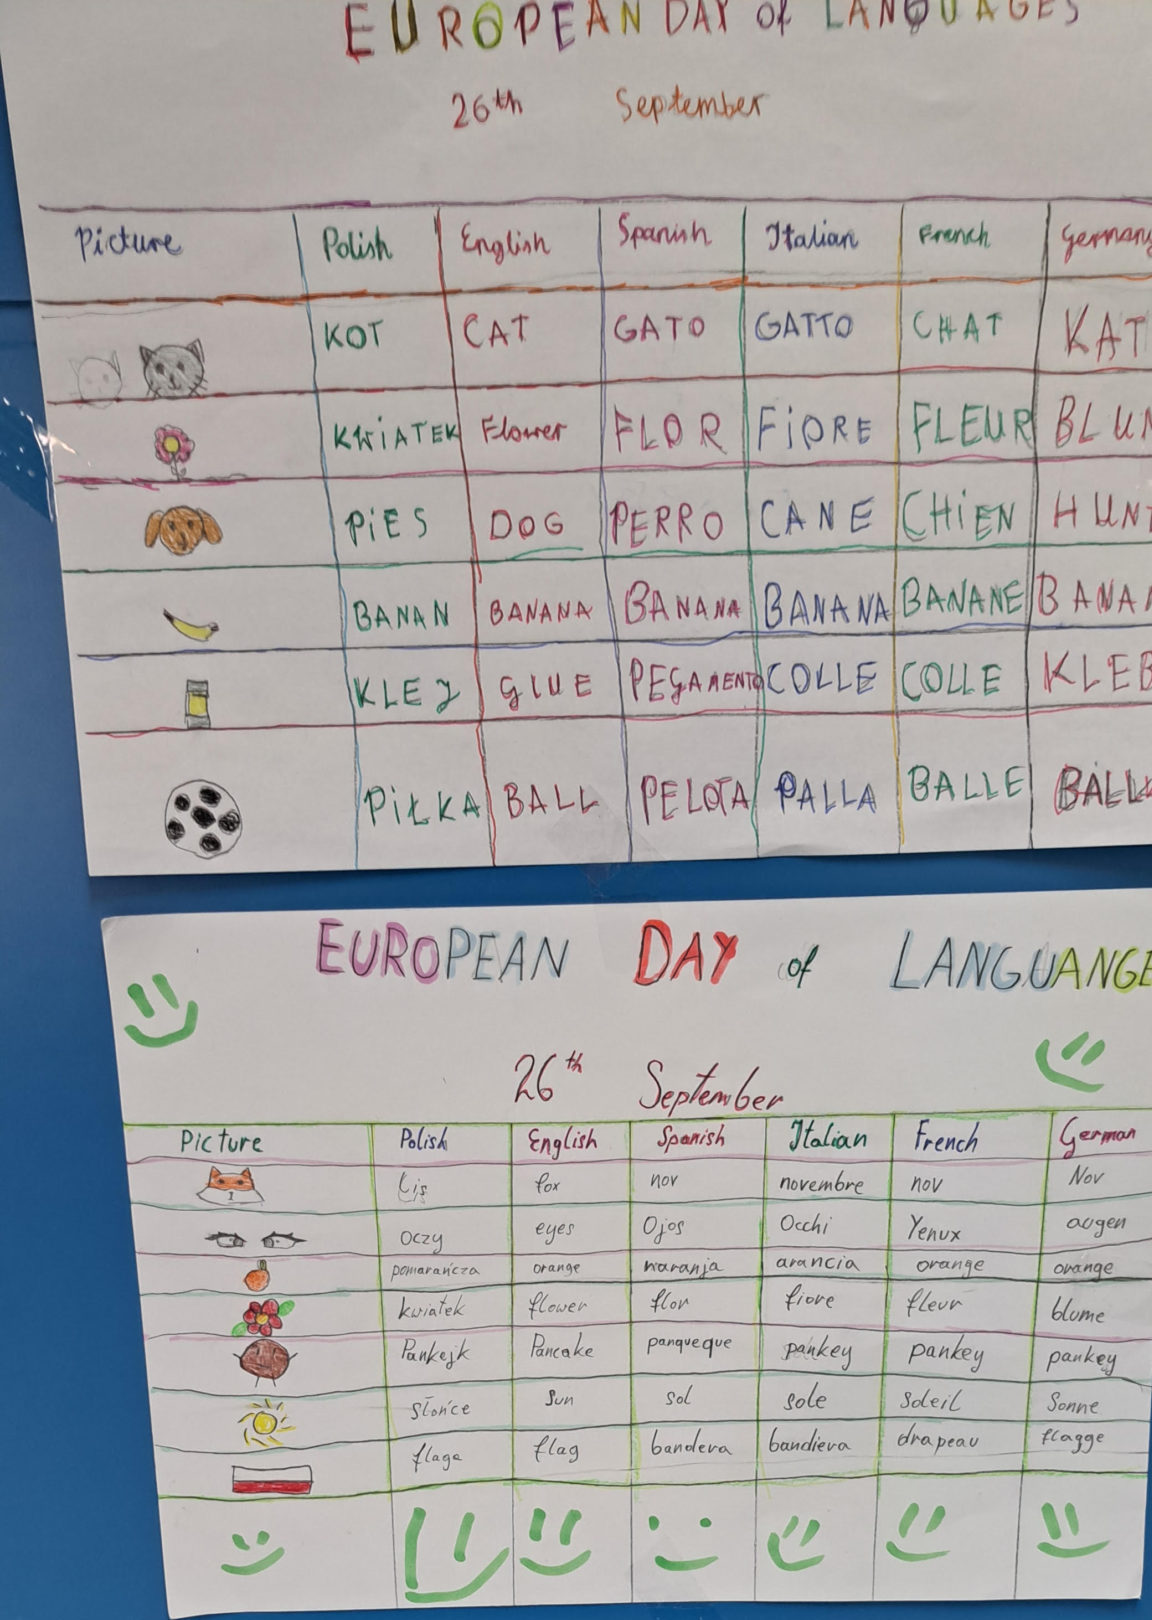 EUROPEAN DAY of LANQUAGES
26th September
Picture Polish English Spanish Italian French Germany
KOT CAT GATO GATTO CHAT KAT
KWiATEK Flower FLOR FiORE FLEUR BLUM
PiES DOG PERRO CANE CHiEN HUNT
BANAN BANANA BANANA BANANA BANANE BANAN
KLEJ GLUE PEGAMENTO COLLE COLLE KLEB
PiŁKA BALL PELOTA PALLA BALLE BALL
EUROPEAN DAY of LANGUANGE
26th September
Picture Polish English Spanish Italian French German
Lis fox nov novembre nov Nov
oczy eyes Ojos Occhi Yenux augen
pomarańcza orange naranja arancia orange orange
kwiatek flower flor fiore fleur blume
Pankejk Pancake panqueque pankey pankey pankey
słońce Sun sol sole soleil Sonne
flaga flag bandera bandiera drapeau flagge